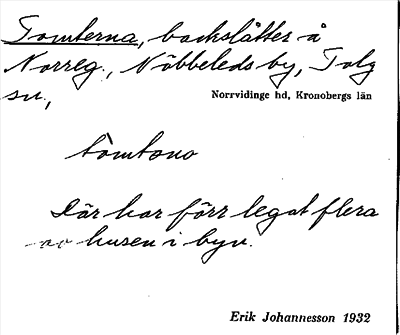 Tomterna, backslåtter å
Norreg., Nöbbeleds by, Tolg
sn,
Norrvidinge hd, Kronobergs län
tòmtǝnɒ
Där har förr legat flera
av husen i byn.
Erik Johannesson 1932